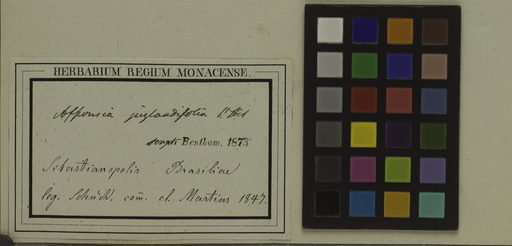 HERBARIUM REGIUM MONACENSE.
Affonsea juglandifolia St Hil
scripts Bentham. 1873
Sebastianopolis Brasiliae
leg. Schück. com. cl. Martius 1847.